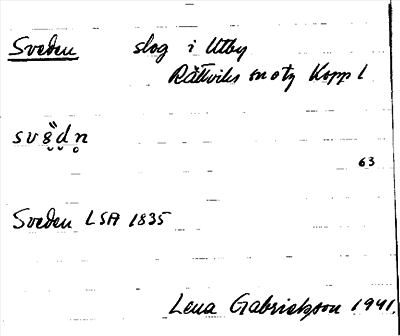 Sveden slog i Utby
Rättviks sn o tg Kopp l
svẹ̈dn̥
63
Sveden LSA 1835
Lena Gabrielsson 1941.